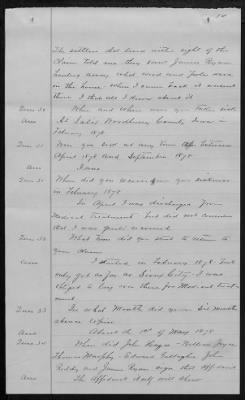 14
The settlers that lived within sight of the
Claim told me they saw James Ryan
hauling away what wood and poles were
in the house when I came back it wasnt
there I that all I know about it.
Ques 30 When and where were you taken sick
Ans At Salix Woodbury County Iowa in
February 1878
Ques 31 Were you sick at any time between
April 1878 and September 1878
Ans I was
Ques 31 When did you recover from your sickness
in February 1878
In April I was discharged from
Medical Treatment but did not consider
that I was quite
Ques 32 What time did you start to return to
your claim
Ans I started in February 1878 but
only got as far as Sioux City. I was
obliged to lay over there for Medical treat-
ment
Ques 33 In what Month did your Six months
absence expire
Ans About the 1st of May 1878
Ques 34 When did John Hayes - William Joyce
Thomas Murphy - Edward Gallagher John
Reddy and James Ryan sign that affidavit
Ans The Affidavit itself will show